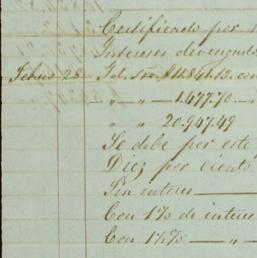 Certificado por
Intereses devengado
Febro 28 Id. Sre. $ 11.841.13. con
" " 1.477.70 "
" " 20.947.49
Se debe por este
Diez por ciento
Sin interes
Con 1% de interes
Con 1½% "